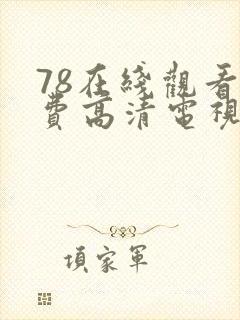 78在綫觀看
費高清電視
項家軍